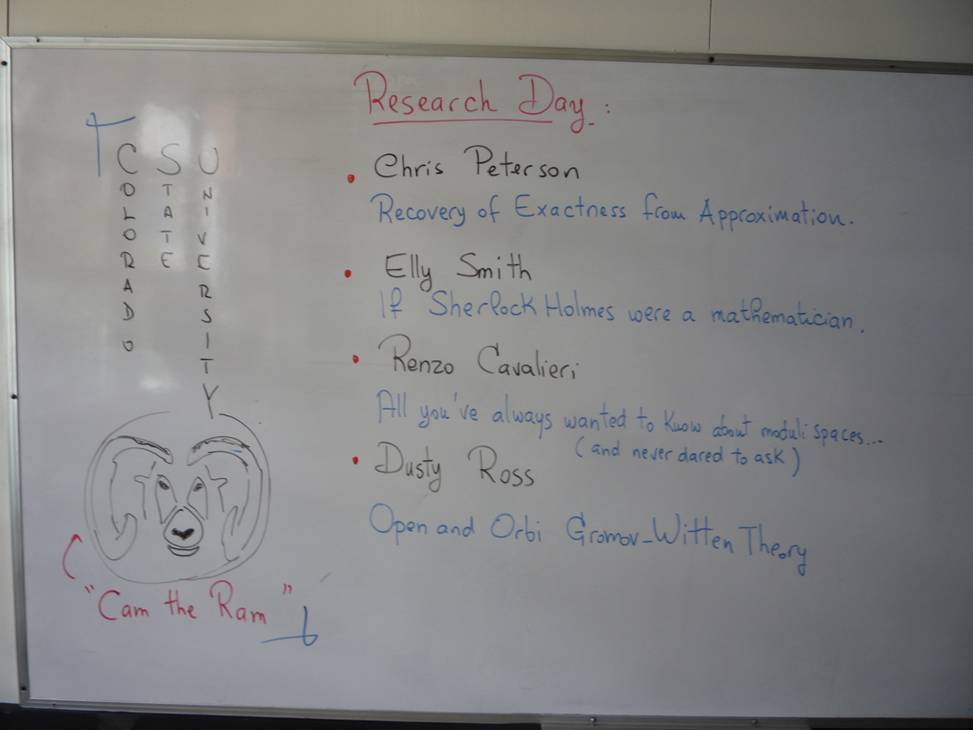 Research Day:
C S U
COLORADO
STATE
UNIVERSITY
• Chris Peterson
Recovery of Exactness from Approximation.
• Elly Smith
If Sherlock Holmes were a mathematician.
• Renzo Cavalieri
All you've always wanted to know about moduli spaces...
(and never dared to ask)
• Dusty Ross
Open and Orbi Gromov-Witten Theory
"Cam the Ram"